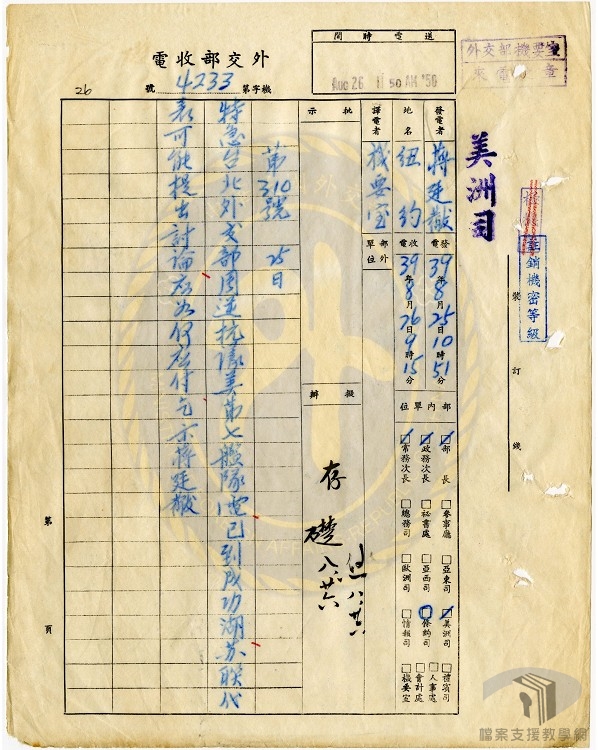 外交部收電
機字第4233號
26
間時電送
AUG 26 11 50 AM '50
外交部機要室
來電
章
美洲司
註銷機密等級
裝
訂
線
發電者
蔣廷黻
地名
紐約
譯電者
機要室
批示
發電
39年8月25日10時51分
收電
39年8月26日9時15分
部外單位
部內單位
部長
政務次長
常務次長
參事廳
秘書處
總務司
亞東司
亞西司
歐洲司
美洲司
條約司
情報司
禮賓司
人事處
會計處
機要室
擬辦
存
礎 八、廿六
八、廿六
第310號 25日
特急台北外交部周逆抗議美第七艦隊電已到成功湖蘇聯代
表可能提出討論應如何應付乞示蔣廷黻
第
頁
檔案支援教學網